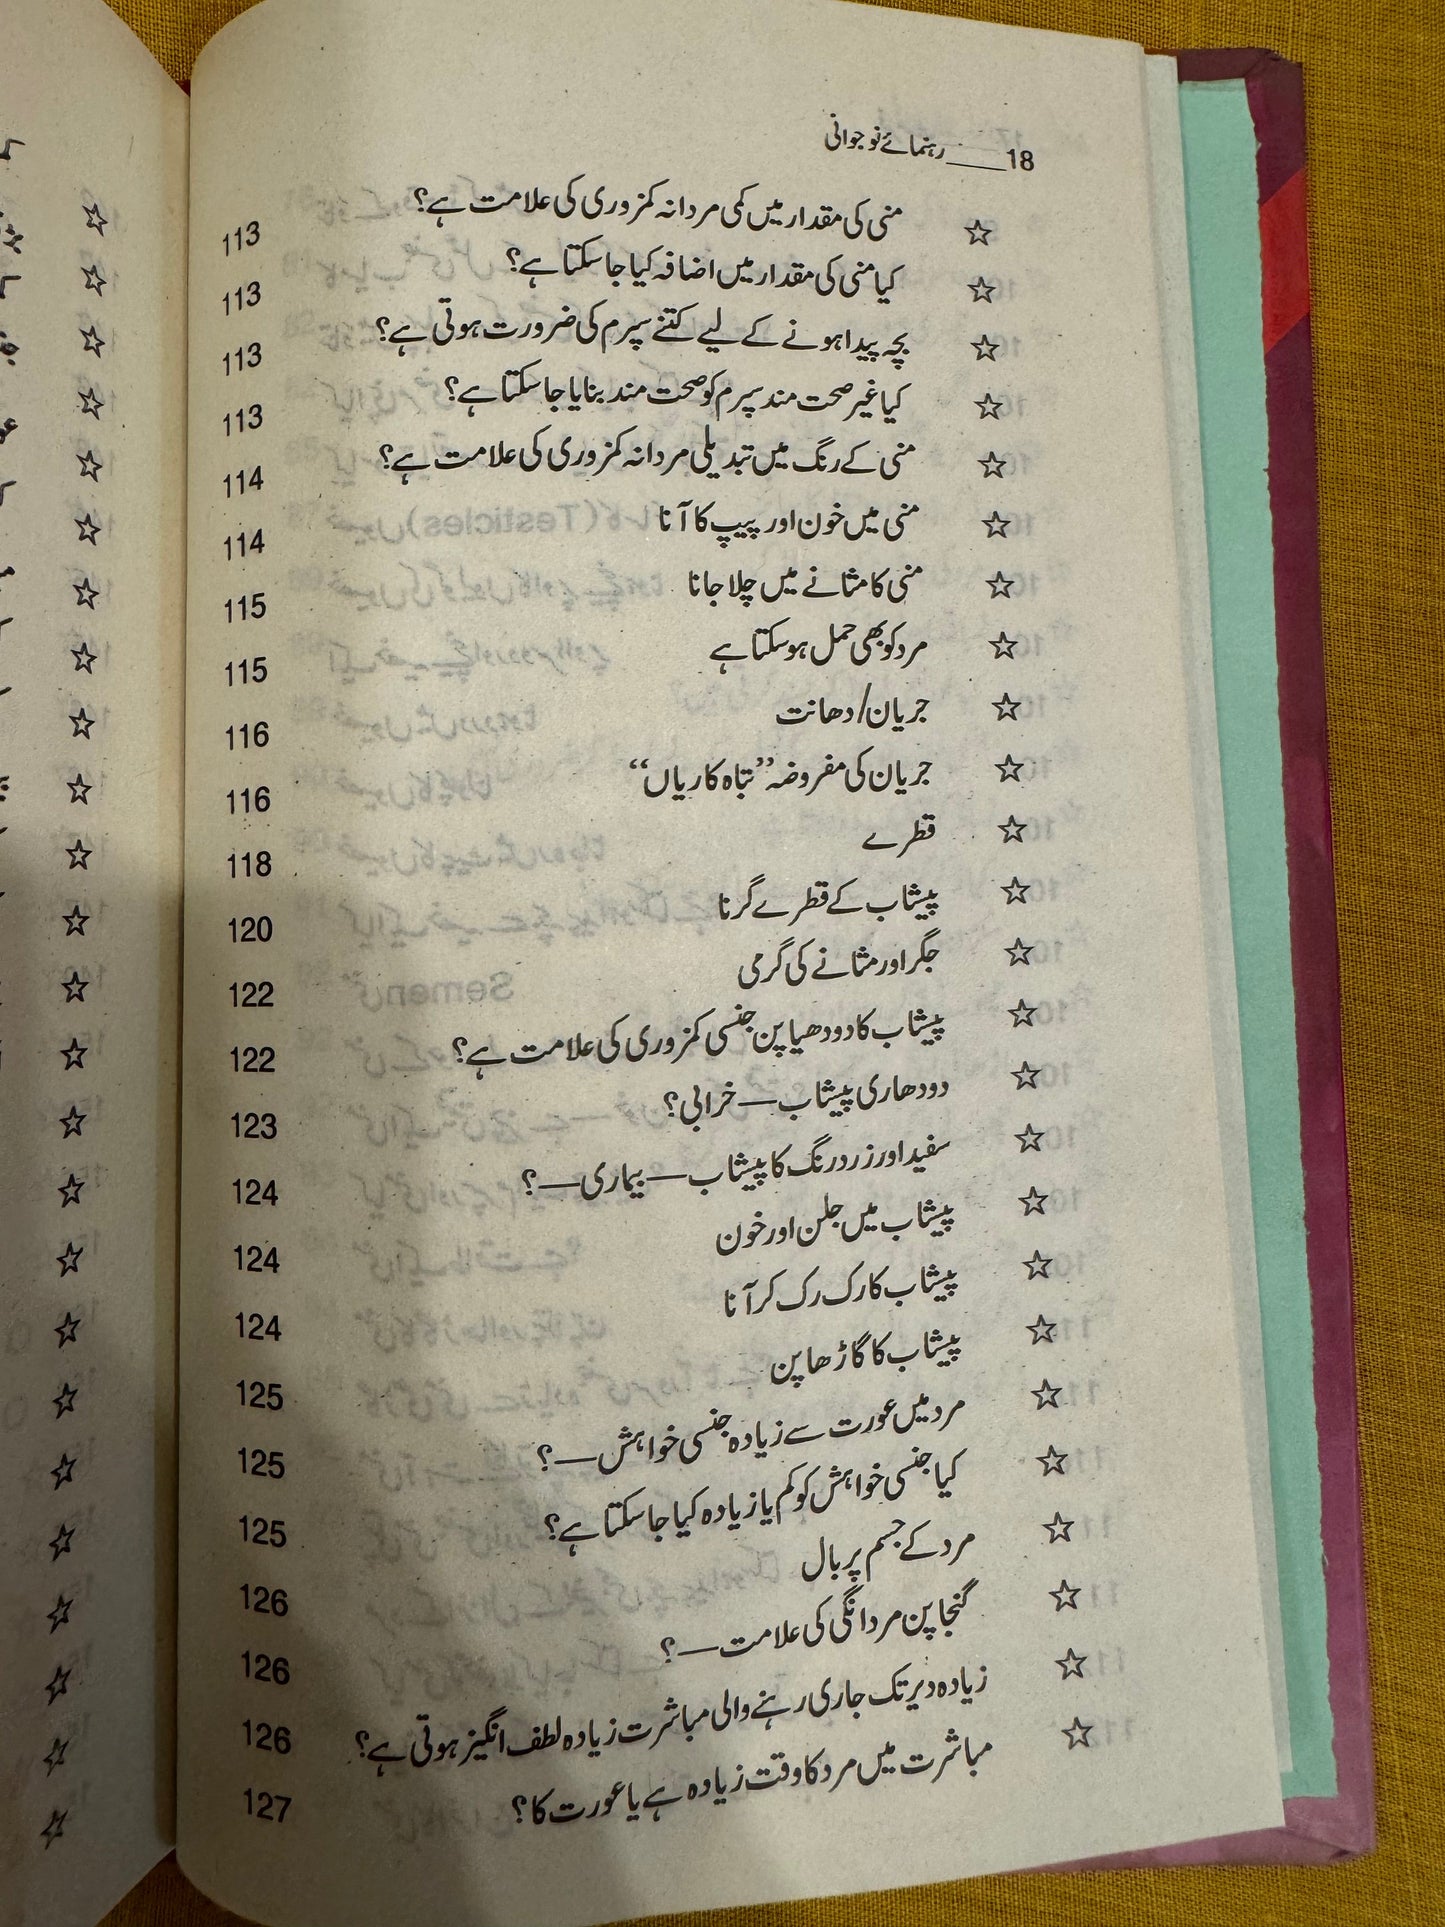 18____رہنمائے نوجوانی
☆ منی کی مقدار میں کمی مردانہ کمزوری کی علامت ہے؟ 113
☆ کیا منی کی مقدار میں اضافہ کیا جا سکتا ہے؟ 113
☆ بچہ پیدا ہونے کے لیے کتنے سپرم کی ضرورت ہوتی ہے؟ 113
☆ کیا غیر صحت مند سپرم کو صحت مند بنایا جا سکتا ہے؟ 113
☆ منی کے رنگ میں تبدیلی مردانہ کمزوری کی علامت ہے؟ 114
☆ منی میں خون اور پیپ کا آنا 114
☆ منی کا مثانے میں چلا جانا 115
☆ مرد کو بھی حمل ہو سکتا ہے 115
☆ جریان/دھانت 116
☆ جریان کی مفروضہ ”تباہ کاریاں“ 116
☆ قطرے 118
☆ پیشاب کے قطرے گرنا 120
☆ جگر اور مثانے کی گرمی 122
☆ پیشاب کا دودھیا پن جنسی کمزوری کی علامت ہے؟ 122
☆ دودھاری پیشاب — خرابی؟ 123
☆ سفید اور زرد رنگ کا پیشاب — بیماری —؟ 124
☆ پیشاب میں جلن اور خون 124
☆ پیشاب کا رک رک کر آنا 124
☆ پیشاب کا گاڑھا پن 125
☆ مرد میں عورت سے زیادہ جنسی خواہش —؟ 125
☆ کیا جنسی خواہش کو کم یا زیادہ کیا جا سکتا ہے؟ 125
☆ مرد کے جسم پر بال 126
☆ گنجا پن مردانگی کی علامت —؟ 126
☆ زیادہ دیر تک جاری رہنے والی مباشرت زیادہ لطف انگیز ہوتی ہے؟ 126
☆ مباشرت میں مرد کا وقت زیادہ ہے یا عورت کا؟ 127